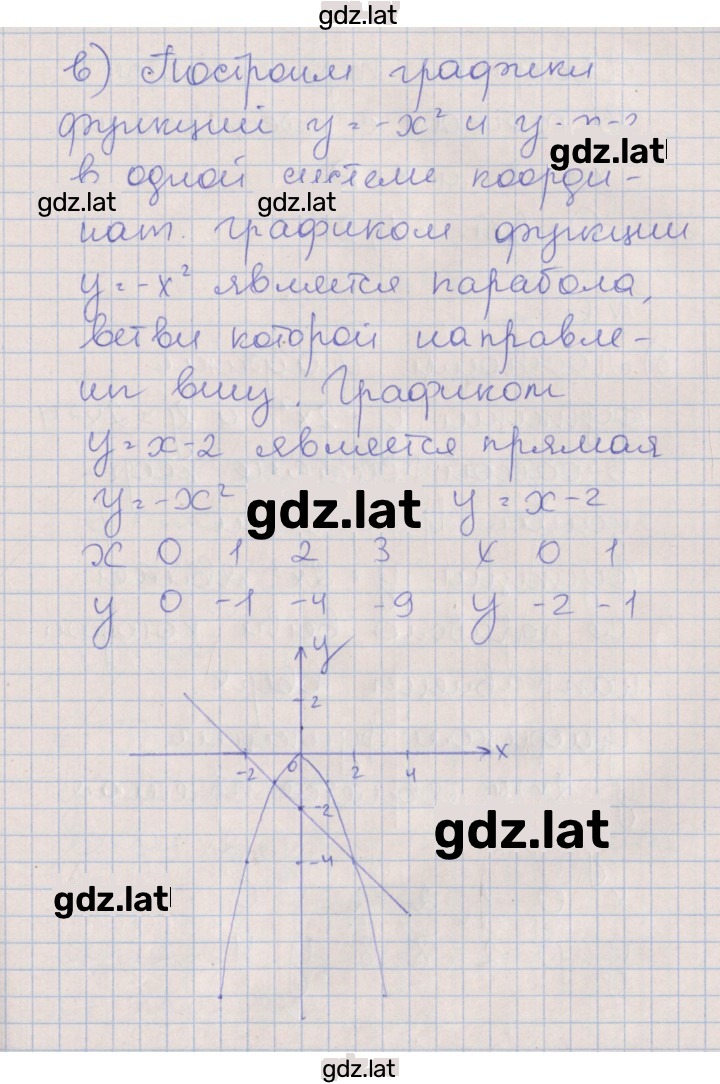 gdz.lat
в) Построим графики
функций y = -x² и y = x-2
gdz.lat
в одной системе коорди-
gdz.lat gdz.lat
нат. Графиком функции
y = -x² является парабола,
ветви которой направле-
ны вниз. Графиком
y = x-2 является прямая
y = -x² gdz.lat y = x-2
x 0 1 2 3 x 0 1
y 0 -1 -4 -9 y -2 -1
y
2
-2 0 2 4 x
-2
gdz.lat
-4
gdz.lat
gdz.lat